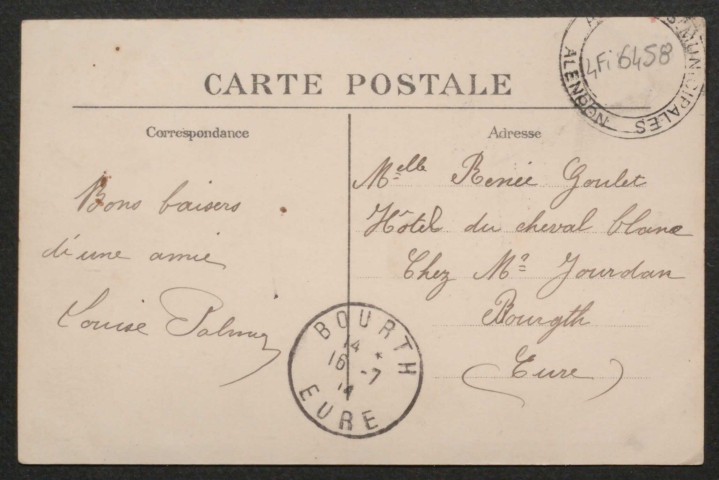 CARTE POSTALE
Correspondance
Adresse
Bons baisers
d'une amie
Louise
Melle Renée Goulet
Hôtel du cheval blanc
Chez Mr Jourdan
Bourgth
(Eure)
BOURTH
14 *
16 -7
14
EURE
MUNICIPALES
ALENÇON
4Fi6458